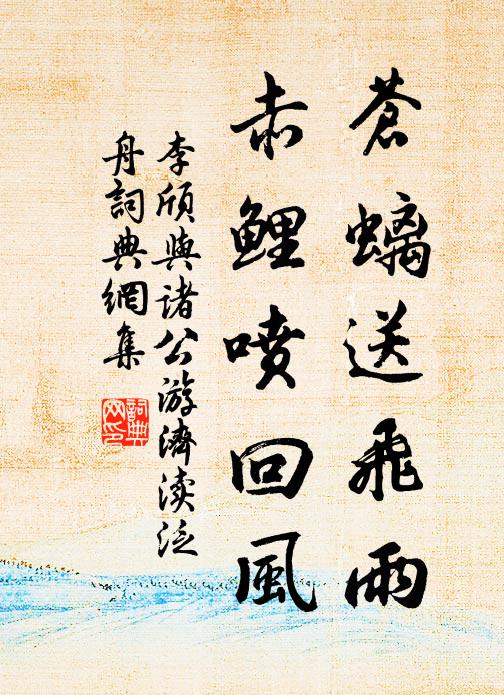 蒼螭送飛雨
赤鯉噴回風
李頎與諸公游濟渎泛
舟詞典網集
詞典
网印